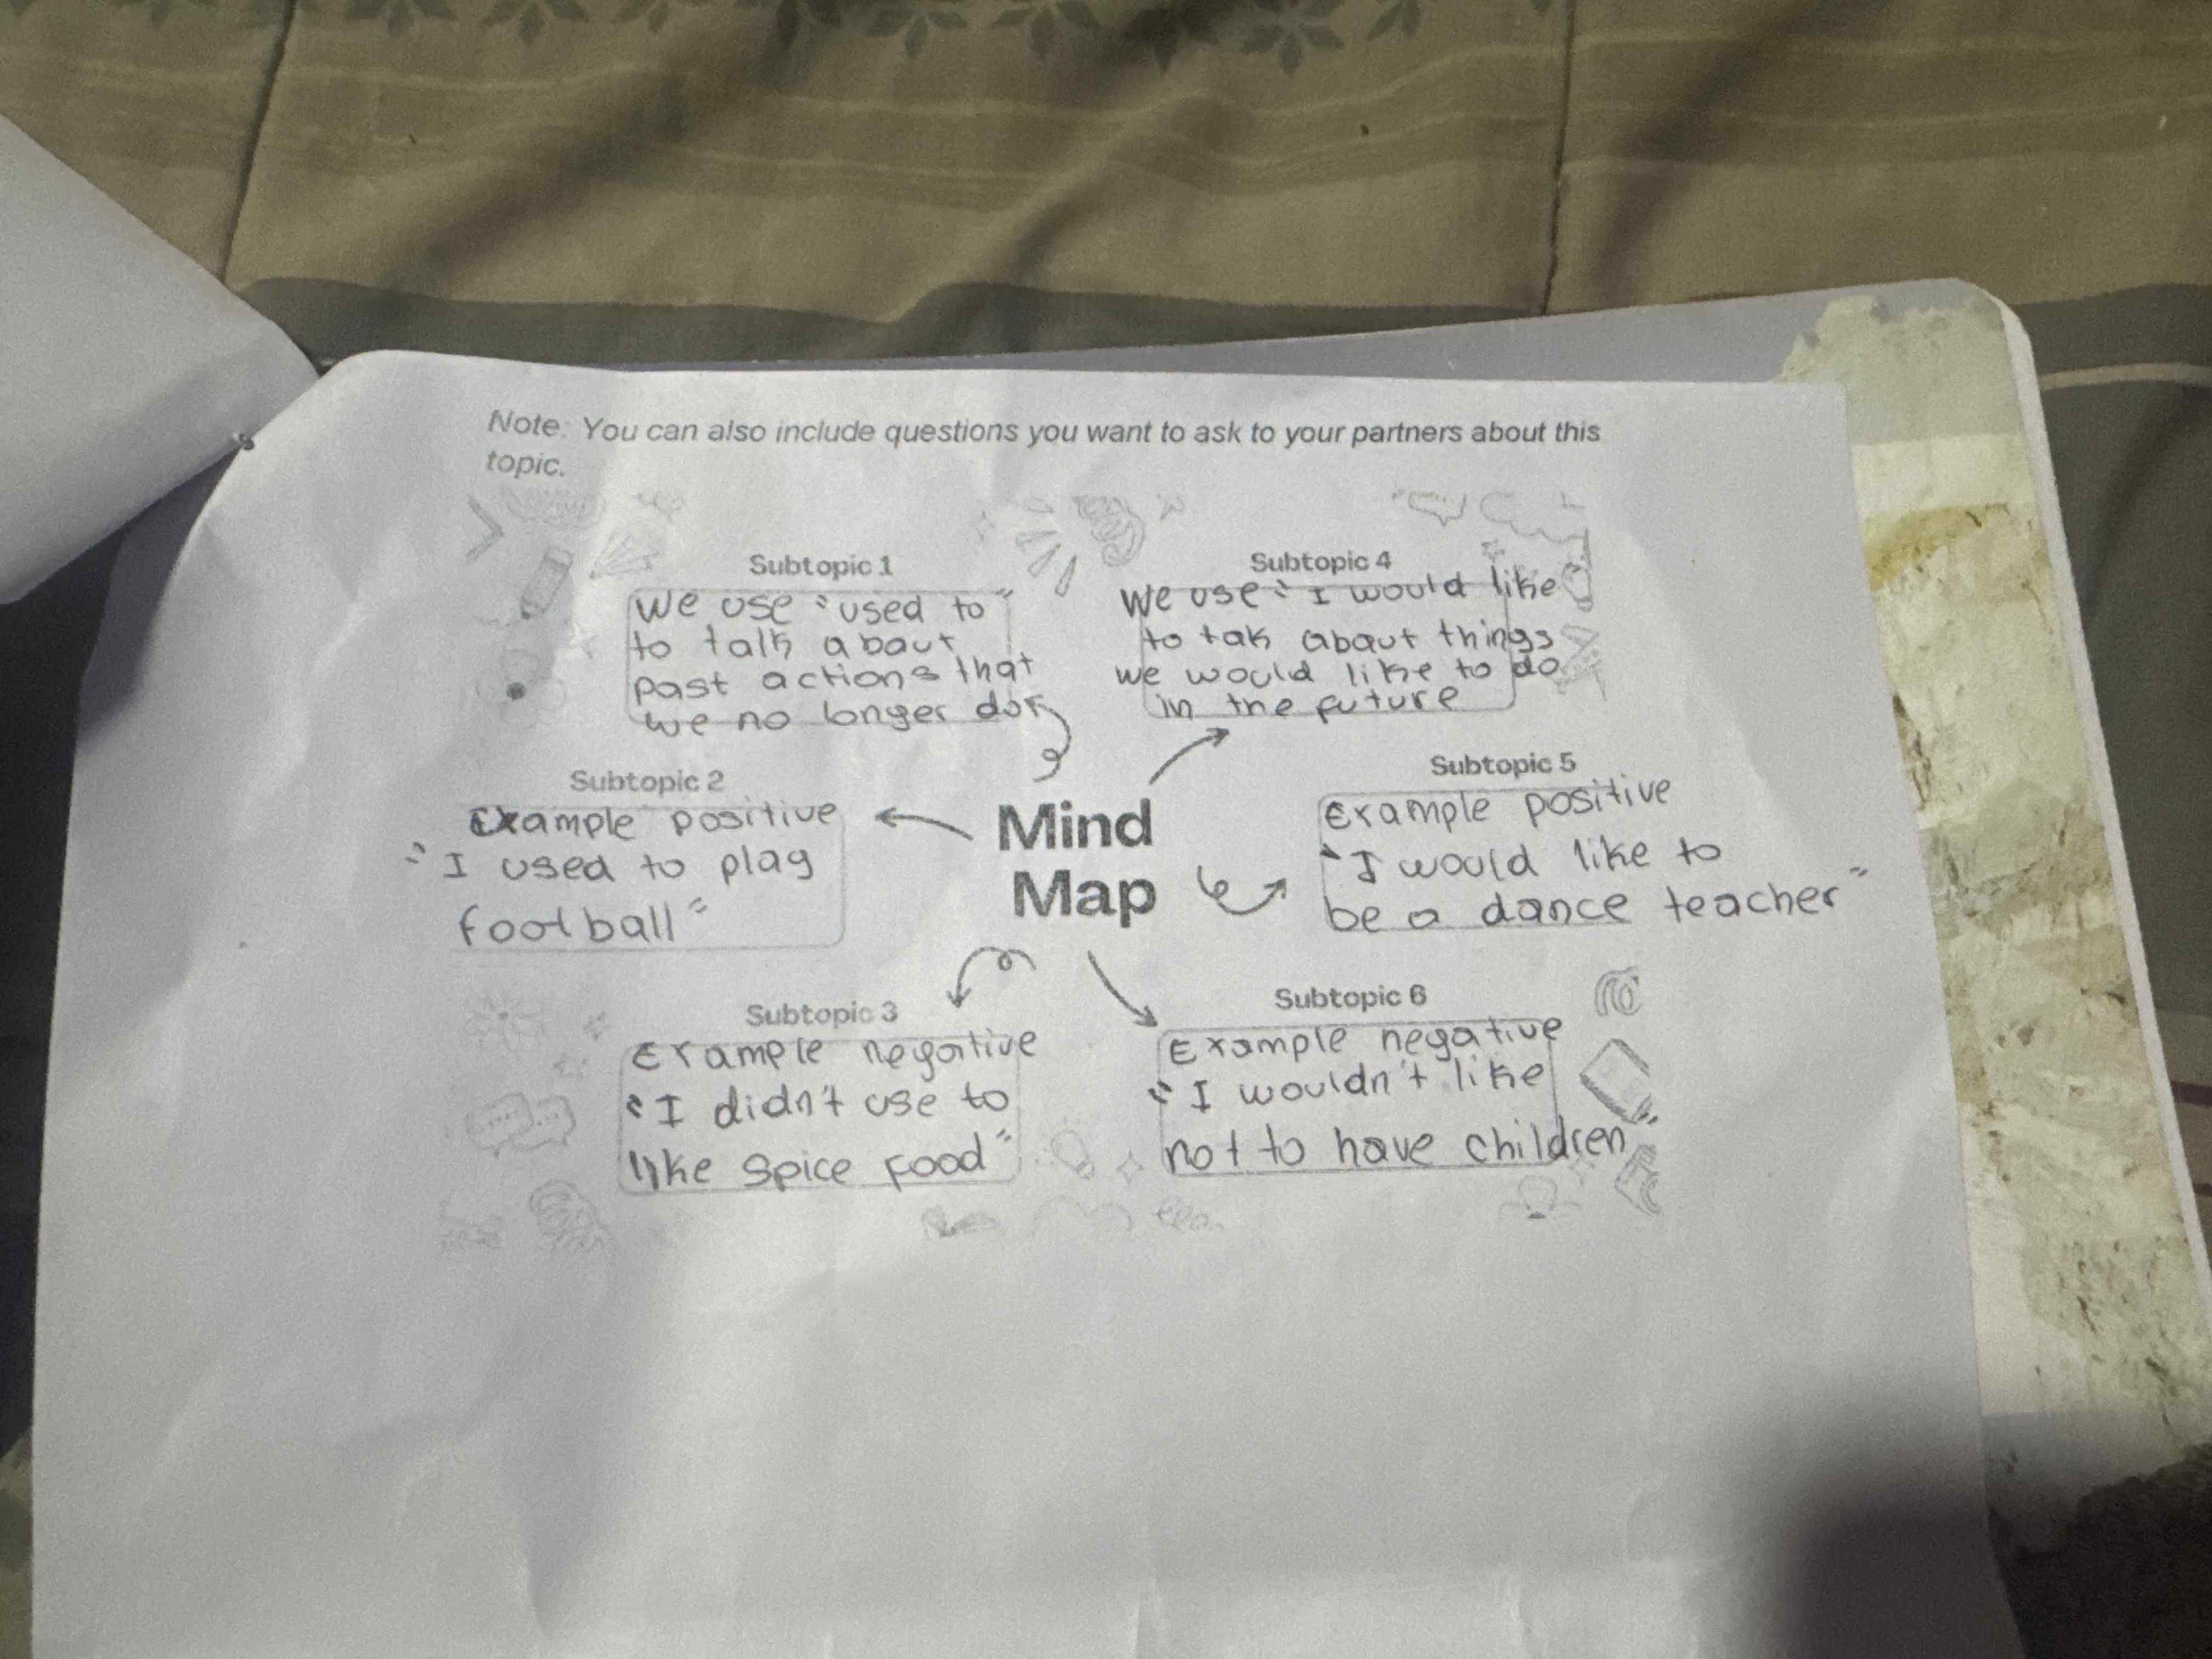 Note: You can also include questions you want to ask to your partners about this
topic.
Subtopic 1
We use "used to"
to talk about
past actions that
we no longer do
Subtopic 2
Example positive
"I used to play
football"
Subtopic 3
Example negative
"I didn't use to
like spice food"
Mind
Map
Subtopic 4
We use "I would like
to tak about things
we would like to do
in the future
Subtopic 5
Example positive
"I would like to
be a dance teacher"
Subtopic 6
Example negative
"I wouldn't like
not to have children"